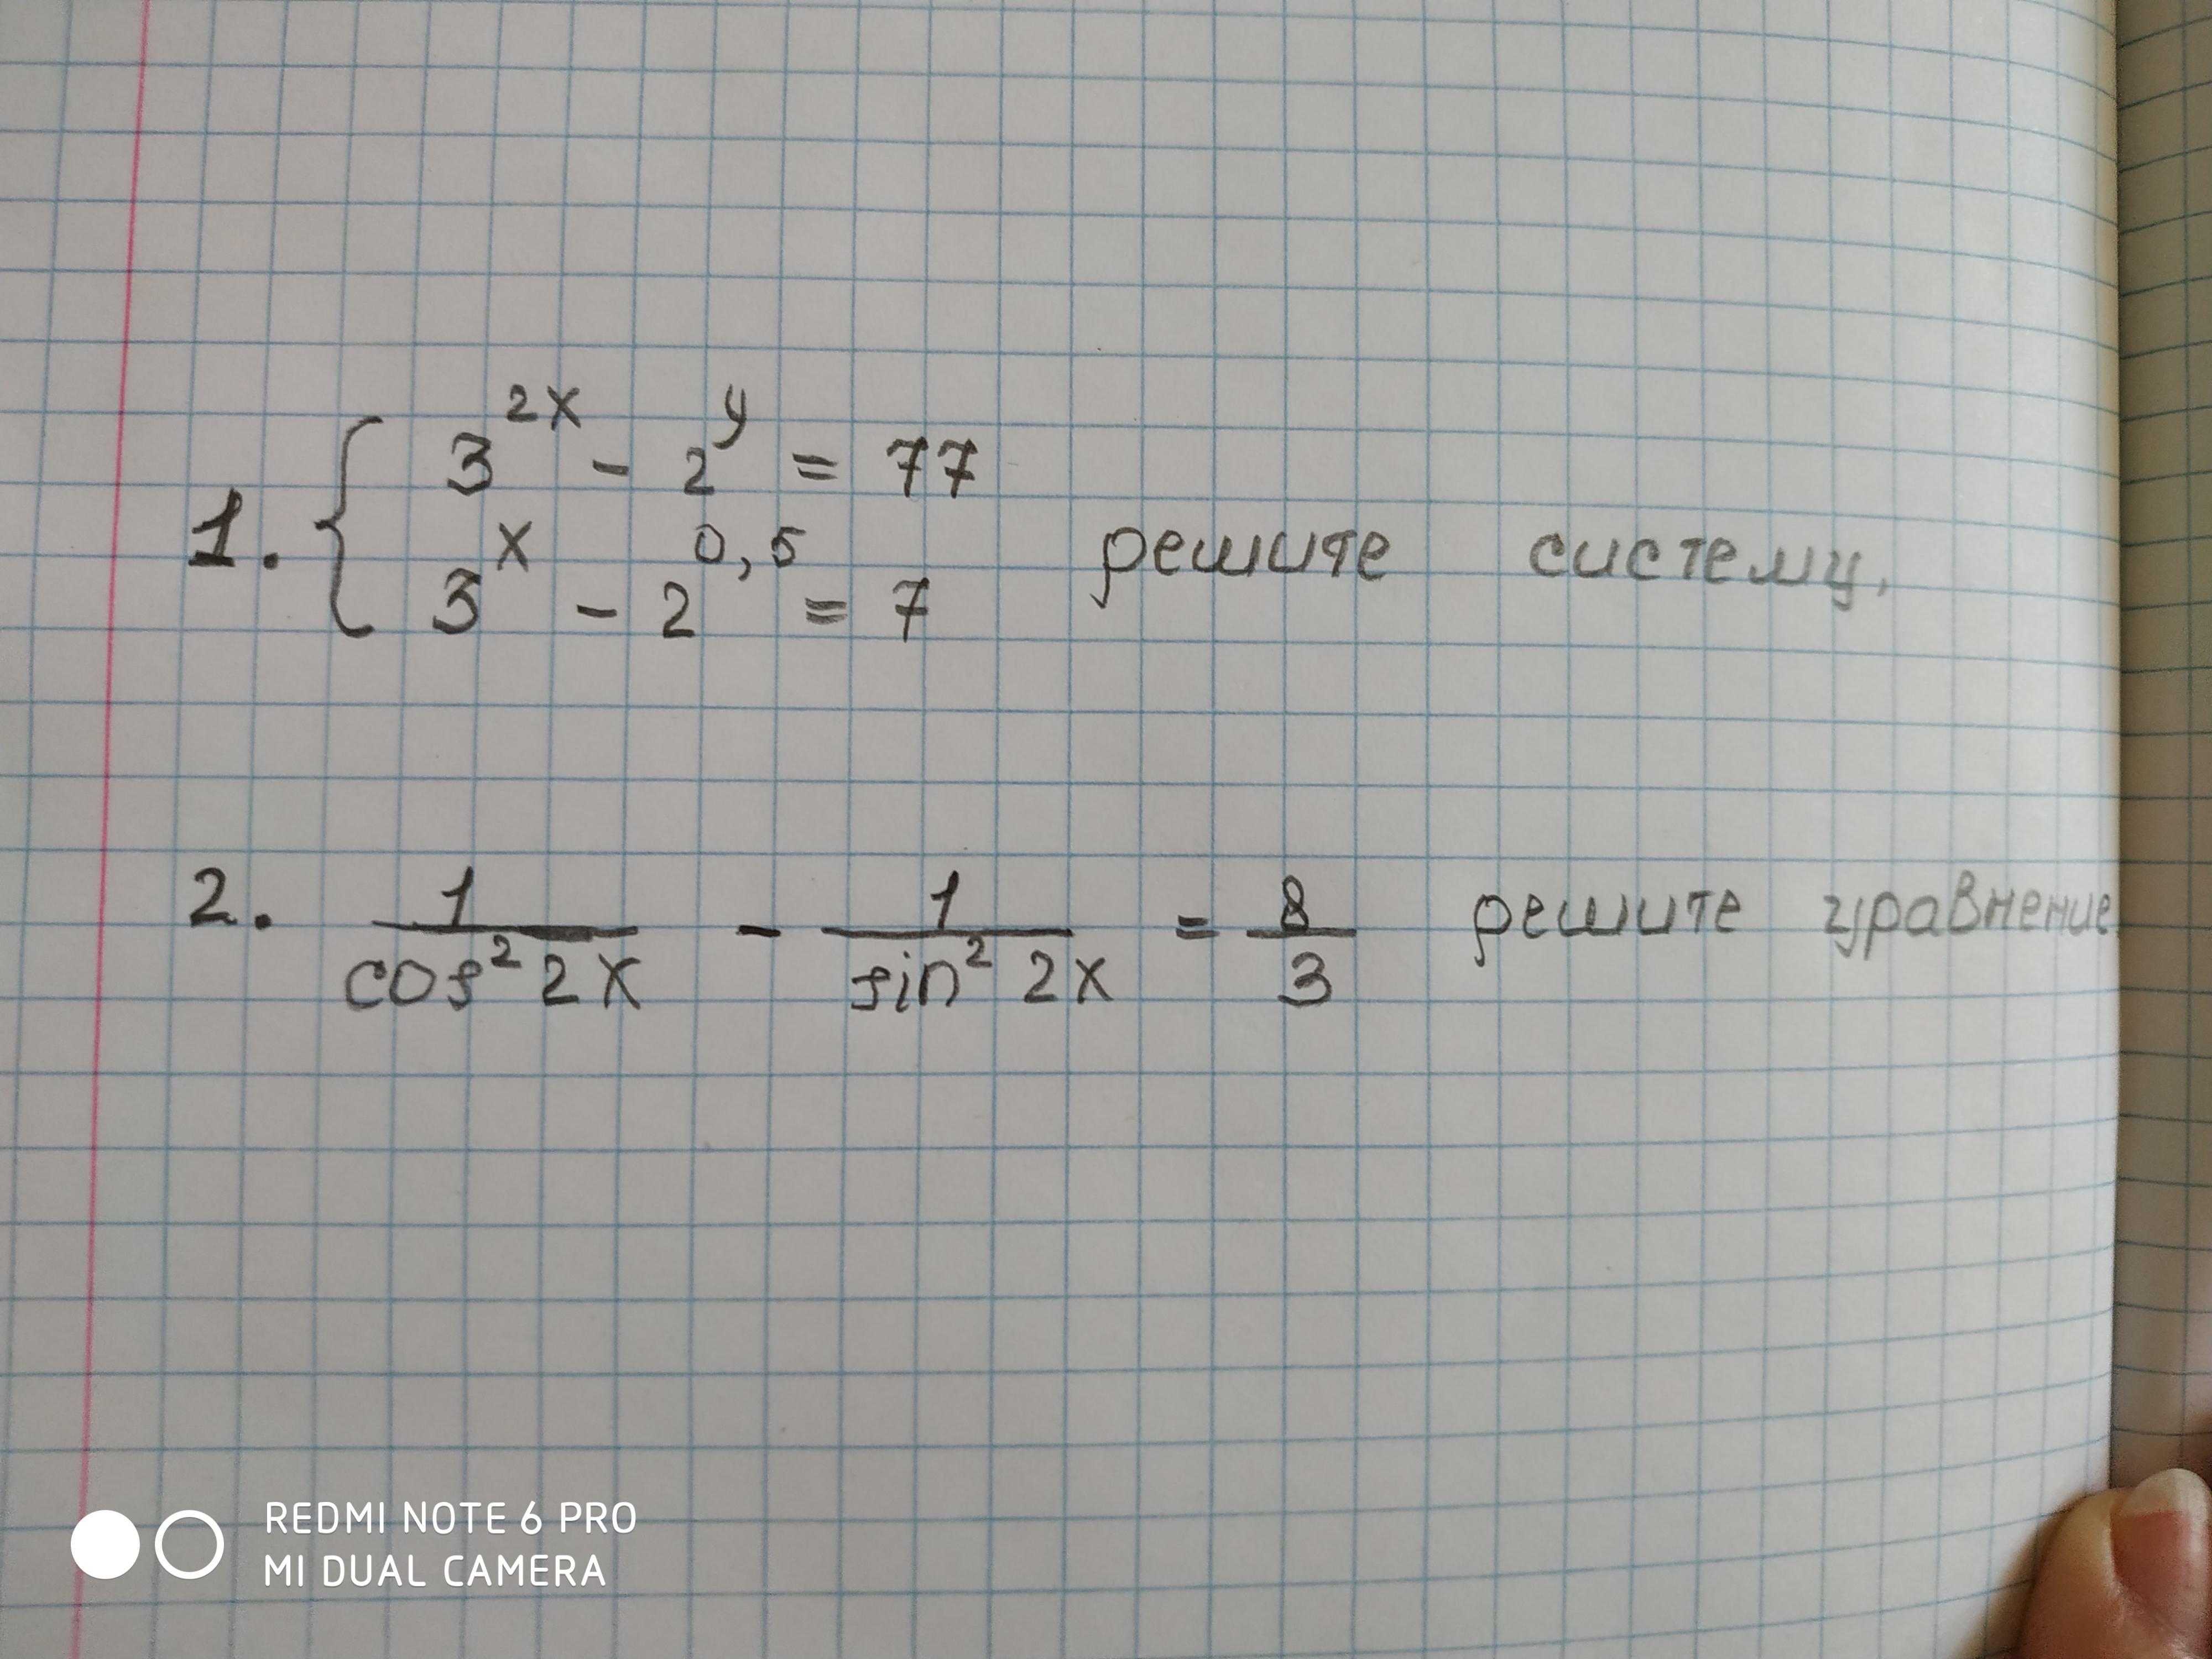 1. { 3^{2x} - 2^y = 77
3^x - 2^{0,5} = 7 решите систему.
2. \frac{1}{cos^2 2x} - \frac{1}{sin^2 2x} = \frac{8}{3} решите уравнение
REDMI NOTE 6 PRO
MI DUAL CAMERA